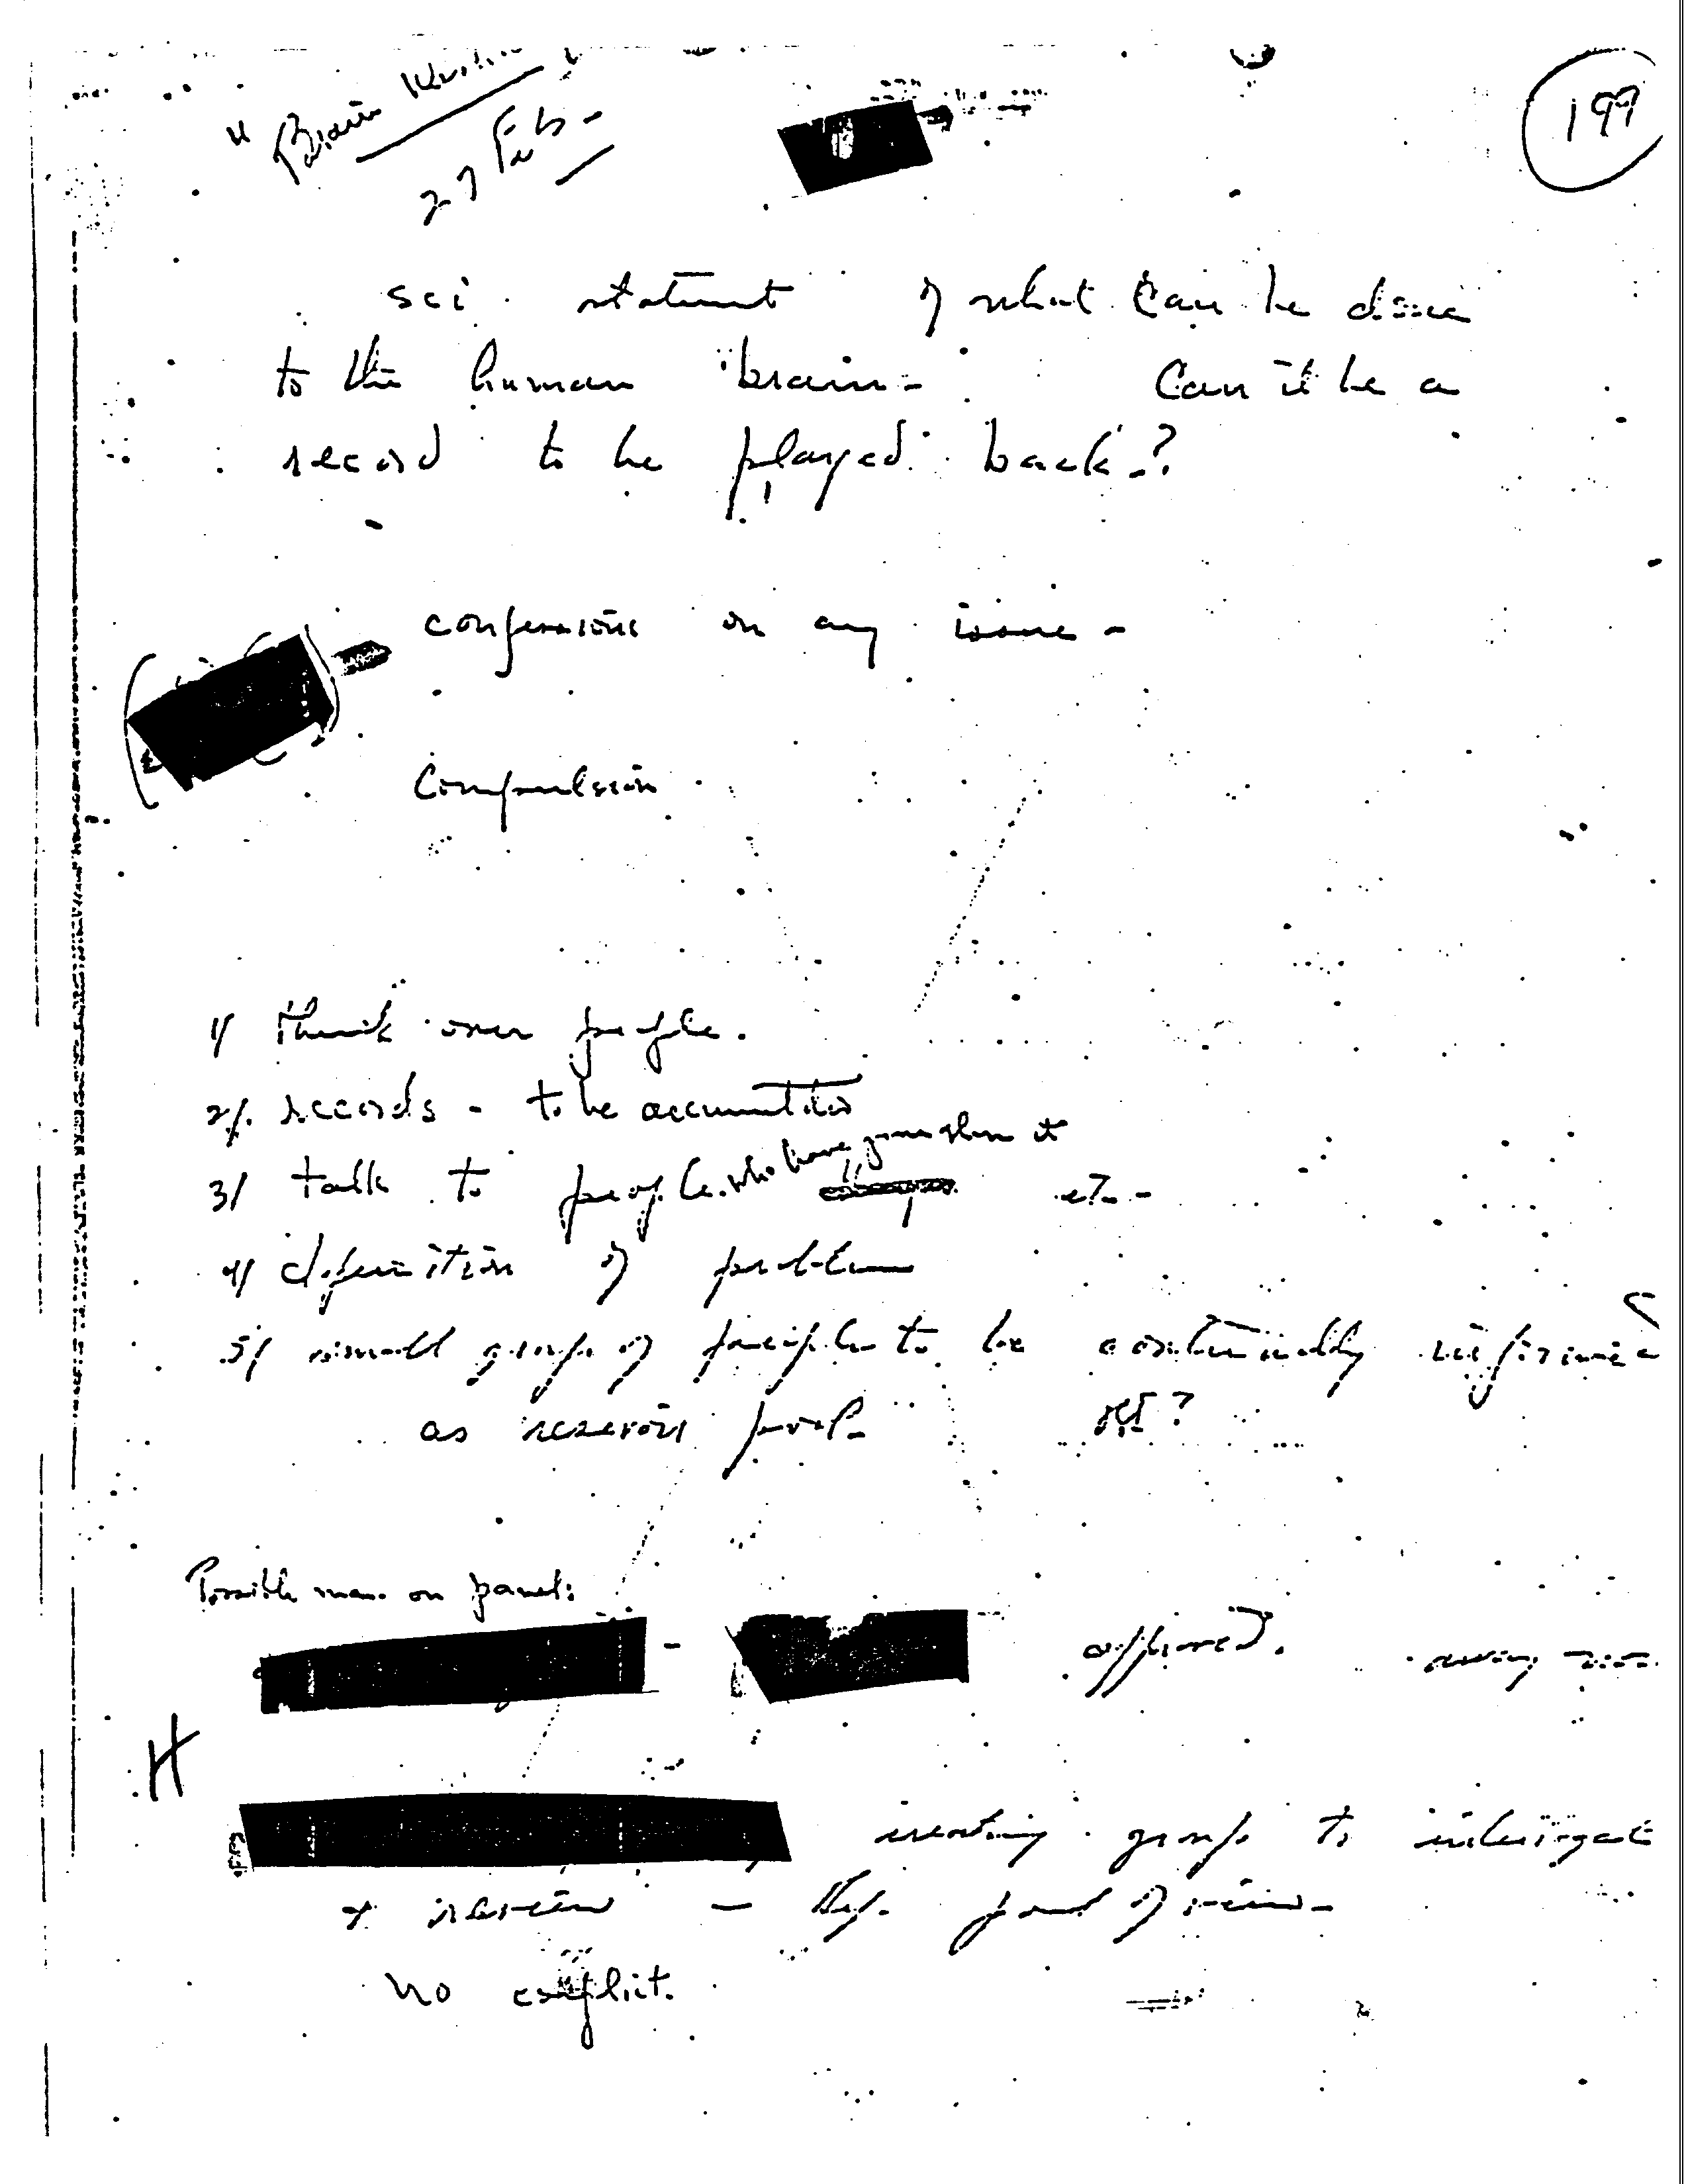 "Brain
27 Feb-
199
sci. statement of what can be done
to the human brain- Can it be a
record to be played back-?
confessions on any issue-
Compulsion
1/ Think over people.
2/. records - to be accumulated
who have gone over it
3/ talk to people. etc-
4/ definition of problem
5/ small group of people to be continually informed
as reservoir pool-
Possible men on panel:
-
H
creating group to interrogate
+ review - the point of view-
no conflict.